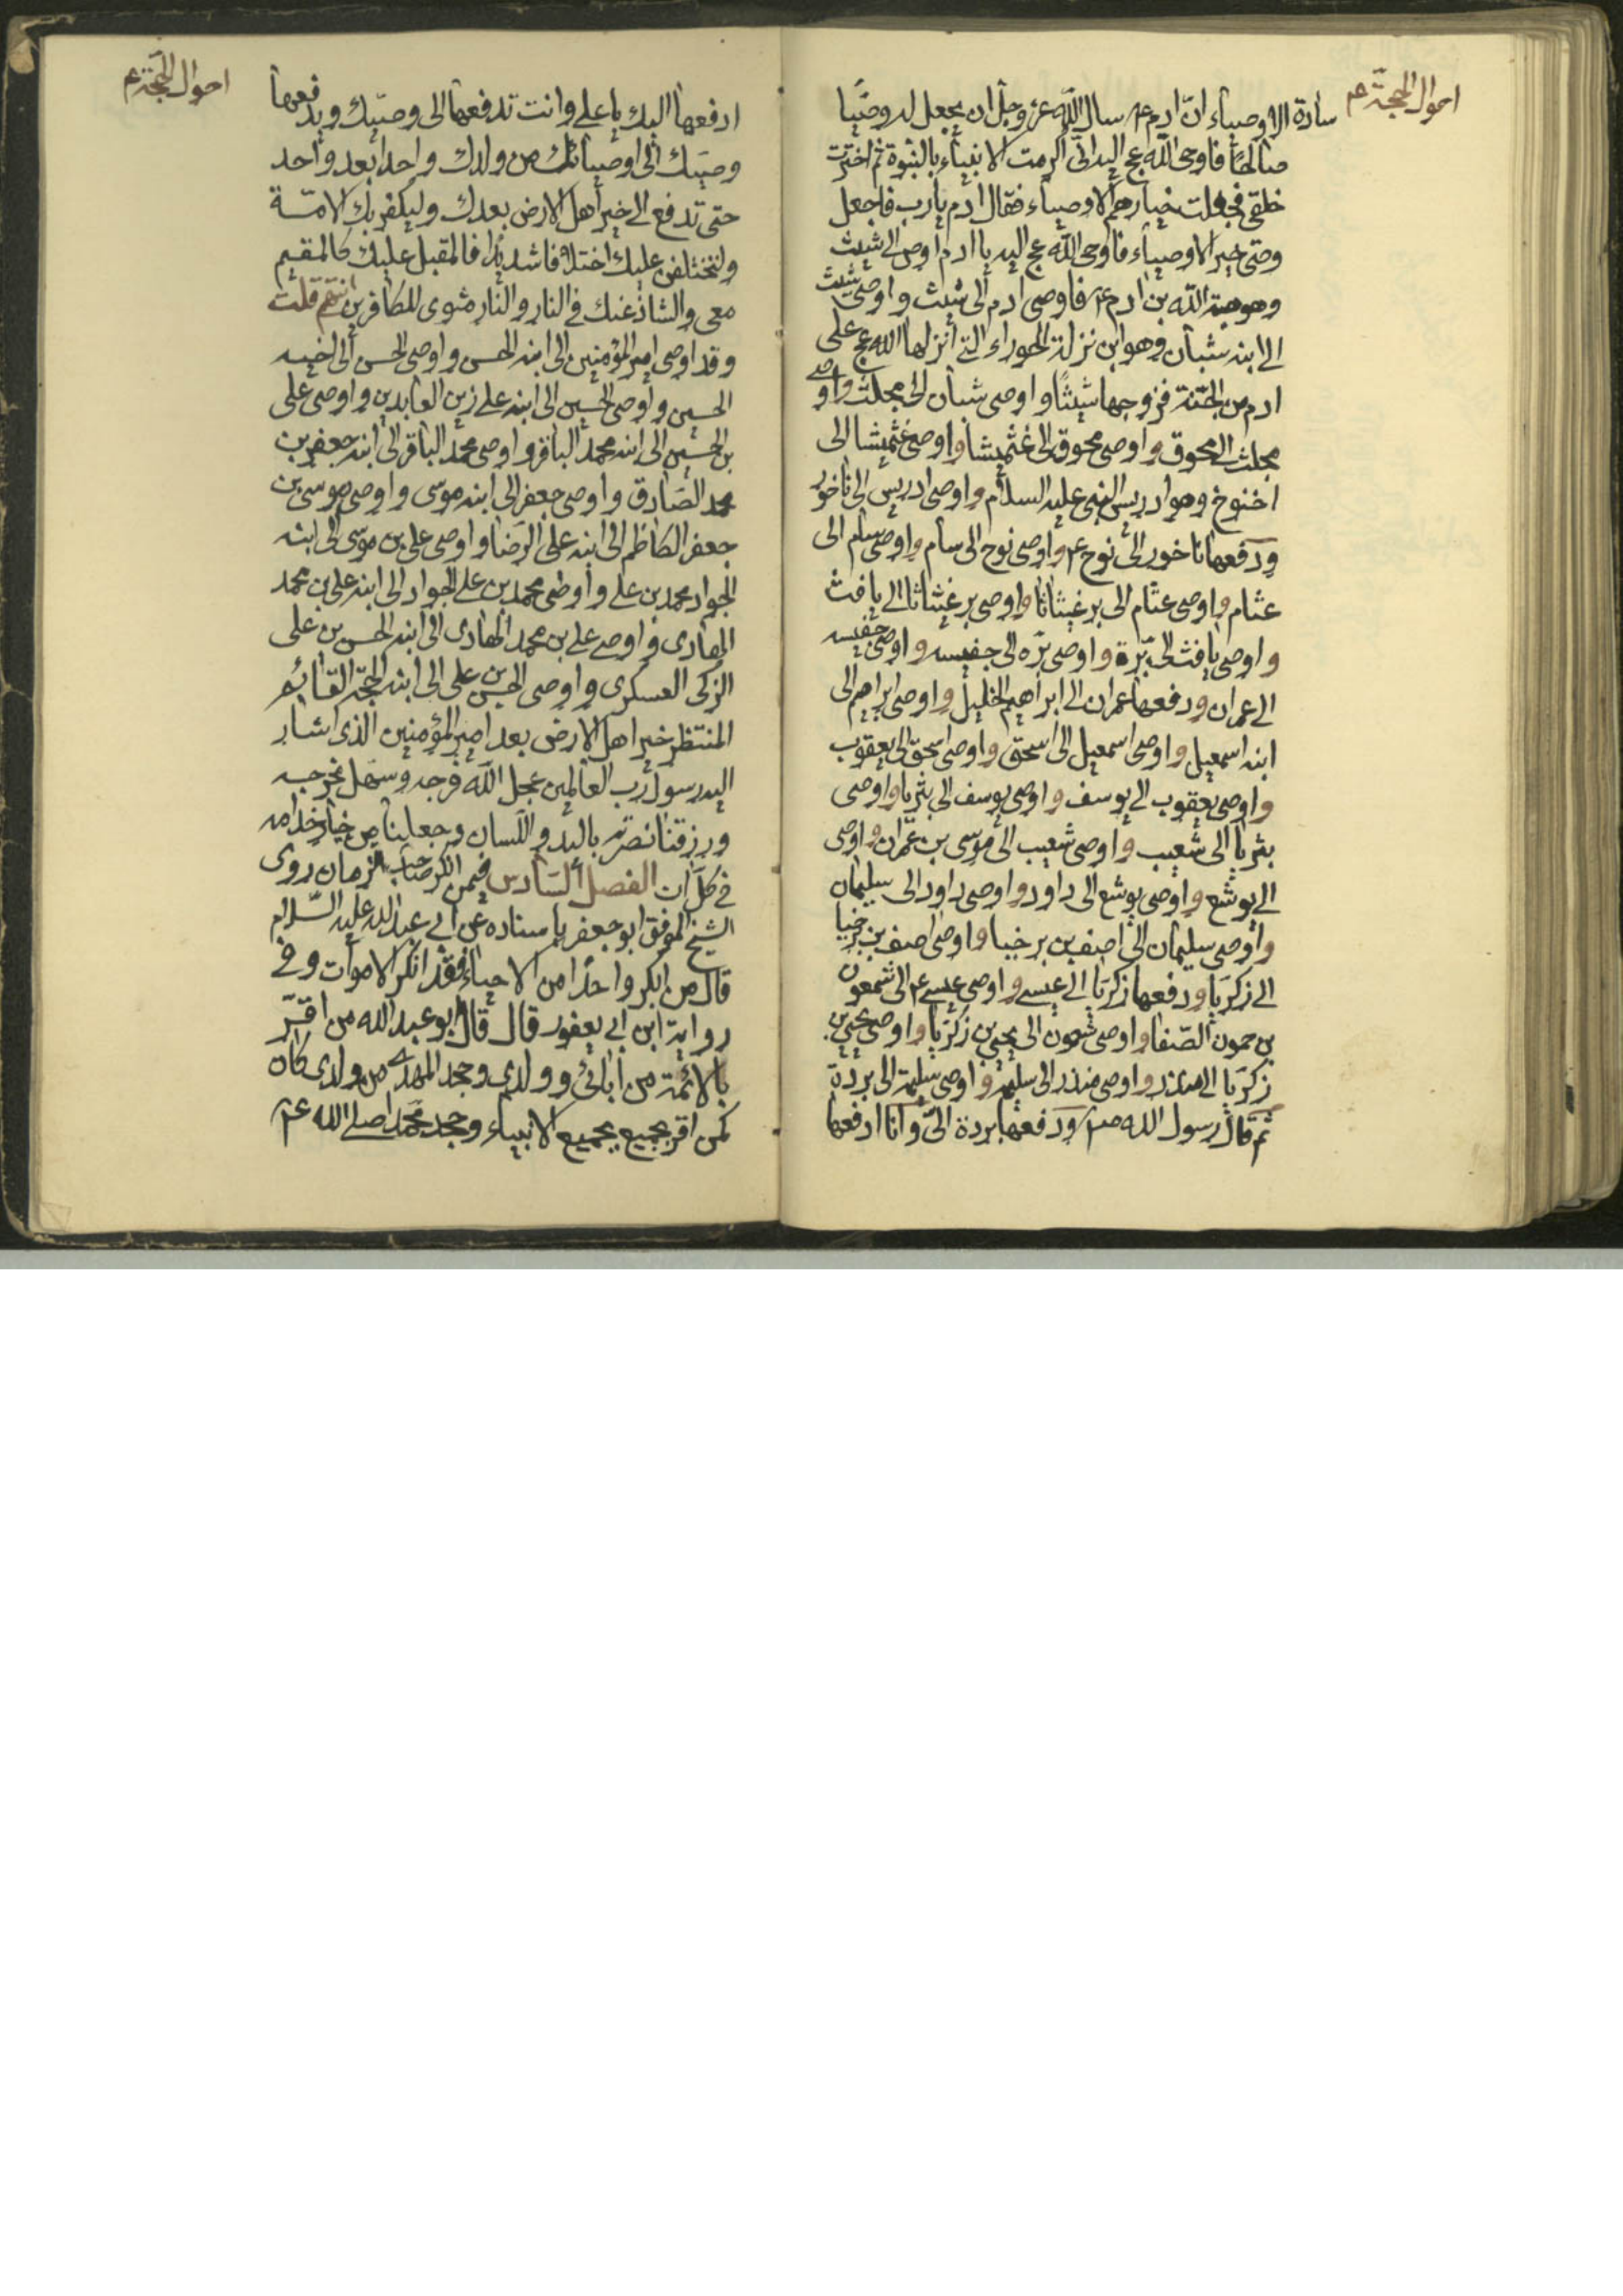 احوال الحجة ع
سادة الاوصياء انّ ادم ع سال اللّه عزّ وجلّ ان يجعل له وصيّا
صالحًا فاوحى اللّه عج اليه انّى اكرمت الانبياء بالنبوة ثم اخترت
خلقى فجعلت خيارهم الاوصياء فقال ادم يارب فاجعل
وصيّى خير الاوصياء فاوحى اللّه عج اليه يا ادم اوص الى شيث
وهو هبة اللّه بن ادم ع فاوصى ادم الى شيث واوصى شيث
الى ابنه شبان وهو ابن نزلة الحوراء التى انزلها اللّه عج على
ادم من الجنّة فزوجها شيثًا واوصى شبان الى مجلث واوصى
مجلث الى محوق واوصى محوق الى غثميشا واوصى غثميشا الى
اخنوخ وهو ادريس النبى عليه السلام واوصى ادريس الى ناخور
ودفعها ناخور الى نوح ع واوصى نوح الى سام واوصى سام الى
عثام واوصى عثام الى برغيثاثا واوصى برغيثاثا الى يافث
واوصى يافث الى برّة واوصى برّه الى جفيسه واوصى جفيسه
الى عمران ودفعها عمران الى ابراهيم الخليل واوصى ابراهيم الى
ابنه اسمعيل واوصى اسمعيل الى اسحق واوصى اسحق الى يعقوب
واوصى يعقوب الى يوسف واوصى يوسف الى بثريا واوصى
بثريا الى شعيب واوصى شعيب الى موسى بن عمران واوصى
الى يوشع واوصى يوشع الى داود واوصى داود الى سليمان
واوصى سليمان الى اصف بن برخيا واوصى اصف بن برخيا
الى زكريّا ودفعها زكريّا الى عيسى واوصى عيسى ع الى شمعون
بن حمون الصّفا واوصى شمعون الى يحيى بن زكريّا واوصى يحيى بن
زكريّا الى منذر واوصى منذر الى سليمة واوصى سليمة الى بردة
ثم قال رسول اللّه ص ودفعها بردة الىّ وانا ادفعها
احوال الحجة ع
ادفعها اليك يا على وانت تدفعها الى وصيّك ويدفعها
وصيّك الى اوصيائك من ولدك واحدا بعد واحد
حتى تدفع الى خير اهل الارض بعدك وليكفرنّ بك الامّة
ولتختلفن عليك اختلافا شديدًا فالمقبل عليك كالمقيم
معى والشاذ عنك فى النار والنار مثوى للكافرين انتهى قلت
وقد اوصى امير المؤمنين الى ابنه الحسن واوصى الحسن الى اخيه
الحسين واوصى الحسين الى ابنه على زين العابدين واوصى على
بن الحسين الى ابنه محمد الباقر واوصى محمد الباقر الى ابنه جعفر بن
محمد الصّادق واوصى جعفر الى ابنه موسى واوصى موسى بن
جعفر الكاظم الى ابنه على الرّضا واوصى على بن موسى الى ابنه
الجواد محمد بن على واوصى محمد بن على الجواد الى ابنه على بن محمد
الهادى واوصى على بن محمد الهادى الى ابنه الحسن بن على
الزكى العسكرى واوصى الحسن بن على الى ابنه الحجّة القائم
المنتظر خير اهل الارض بعد امير المؤمنين الذى اشار
اليه رسول رب العالمين عجل اللّه فرجه وسهّل مخرجه
ورزقنا نصرته باليد واللّسان وجعلنا من خيار خدامه
فى كلّ ان الفصل السّادس فيمن انكر صاحب الزمان روى
الشيخ الموفق ابو جعفر باسناده عن ابى عبد اللّه عليه السّلام
قال من انكر واحدًا من الاحياء فقد انكر الاموات وفى
رواية ابن ابى يعفور قال قال ابو عبد اللّه من اقرّ
بالائمّة من ابائى وولدى وجحد المهدى من ولدى كان
كمن اقر بجميع بجميع الانبياء وجحد محمّدا صلى اللّه ع